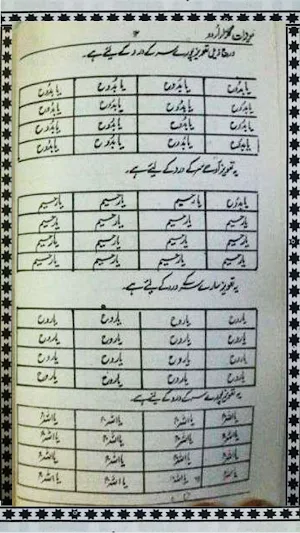 ۲
تعویز پورے سر کے درد کے لیئے ہے۔
یا بدوح یا بدوح یا بدوح یا بدوح
یا بدوح یا بدوح یا بدوح یا بدوح
یا بدوح یا بدوح یا بدوح یا بدوح
یا بدوح یا بدوح یا بدوح یا بدوح
یہ تعویز آدھے سر کے درد کے لیئے ہے۔
یا بدوح یا رحیم یا رحیم یا رحیم
یا رحیم یا رحیم یا رحیم یا رحیم
یا رحیم یا رحیم یا رحیم یا رحیم
یا رحیم یا رحیم یا رحیم یا رحیم
یہ تعویز سارے سر کے درد کے لیئے ہے۔
یا روح یا روح یا روح یا روح
یا روح یا روح یا روح یا روح
یا روح یا روح یا روح یا روح
یا روح یا روح یا روح یا روح
یہ تعویز سر کے درد کے لیئے ہے۔
یا اللہ یا اللہ یا اللہ یا اللہ
یا اللہ یا اللہ یا اللہ یا اللہ
یا اللہ یا اللہ یا اللہ یا اللہ
یا اللہ یا اللہ یا اللہ یا اللہ